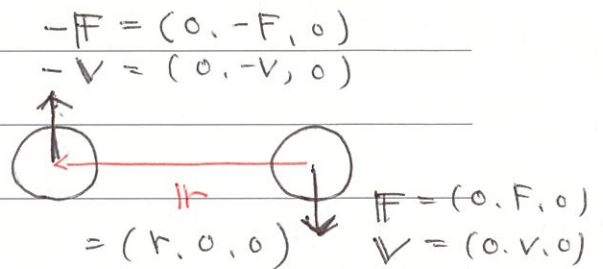 -𝔽 = (0. -F, 0)
-𝕍 = (0, -V, 0)
𝕣
= (r, 0, 0)
𝔽 = (0. F, 0)
𝕍 = (0. V, 0)